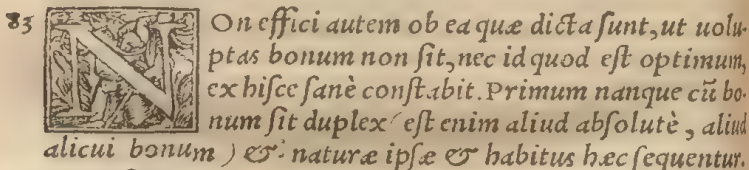 83 NOn effici autem ob ea quæ dicta sunt, ut uolu-
ptas bonum non sit, nec id quod est optimum,
ex hisce sanè constabit. Primum nanque cũ bo-
num sit duplex (est enim aliud absolutè, aliud
alicui bonum) & naturæ ipsæ & habitus hæc sequentur.